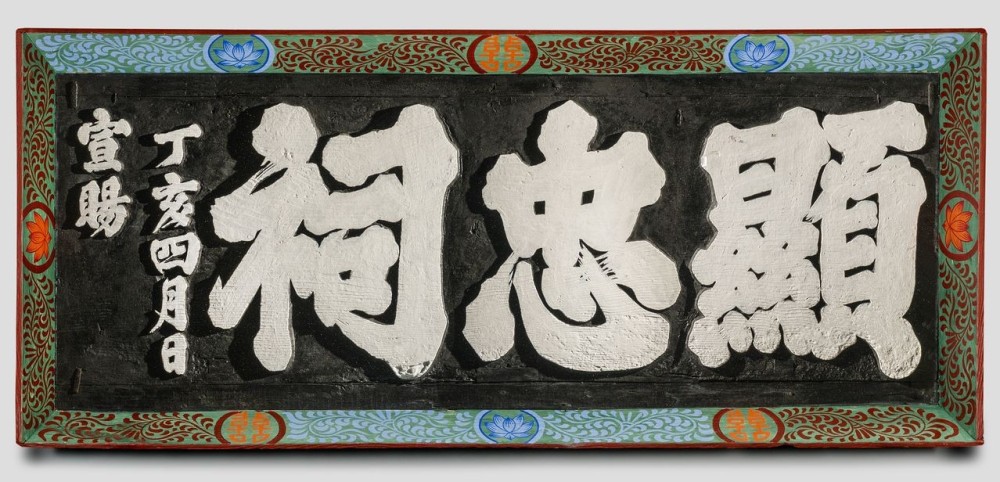 顯忠祠
丁亥四月日
宣賜